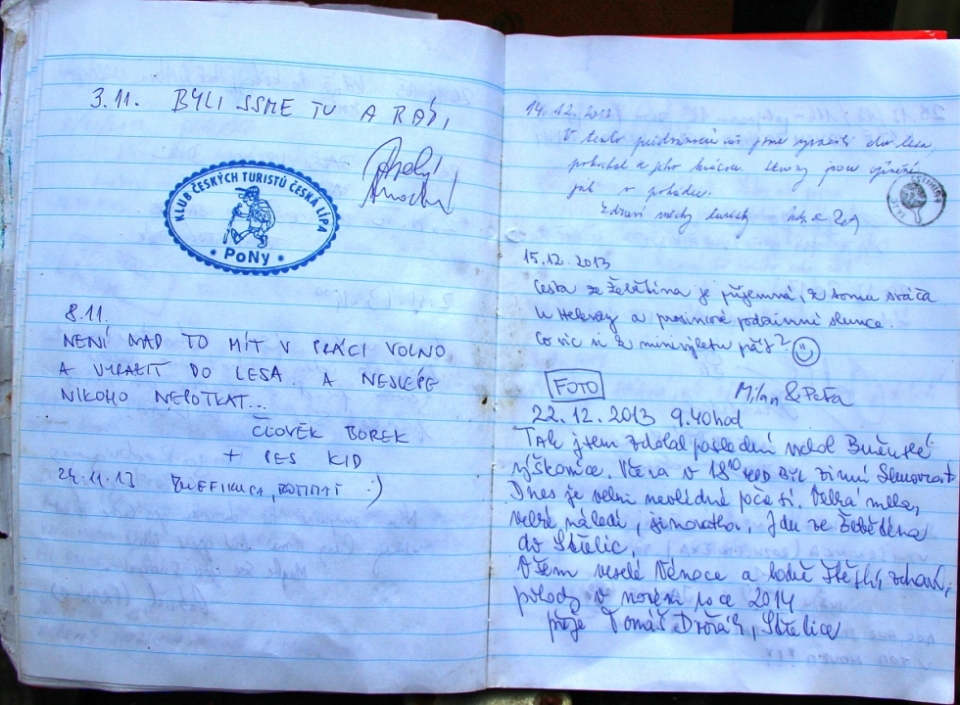 3.11. BYLI JSME TU A RÁDI,
KLUB ČESKÝCH TURISTŮ ČESKÁ LÍPA
PoNy
8.11.
NENÍ NAD TO MÍT V PRÁCI VOLNO
A VYRAZIT DO LESA. A NEJLÉPE
NIKOHO NEPOTKAT...
ČLOVĚK BOREK
+ PES KID
24.11.13 :)
14.12.2013
V tento jsme vyrazili do lesa,
pokochat a jeho krásou. jsou
jak v pohádce.
Zdraví všechny turisty
15.12.2013
Cesta ze Žebětína je příjemná, k tomu svača
u Helenky a prosincové podzimní slunce.
Co víc si k minivýletu přát? ☺
Milan & Peťa
FOTO
22.12.2013 9.40hod
Tak jsem zdolal poslední vrchol Brněnské
výškovnice. Včera v 18 10 hod byl zimní slunovrat
Dnes je velmi nevlídné počasí. Velká mlha,
velké náledí, jinovatka. Jdu ze Žebětína
do Střelic.
Všem veselé Vánoce a hodně štěstí, zdraví,
pohody v novém roce 2014
přeje Tomáš Dvořák, Střelice